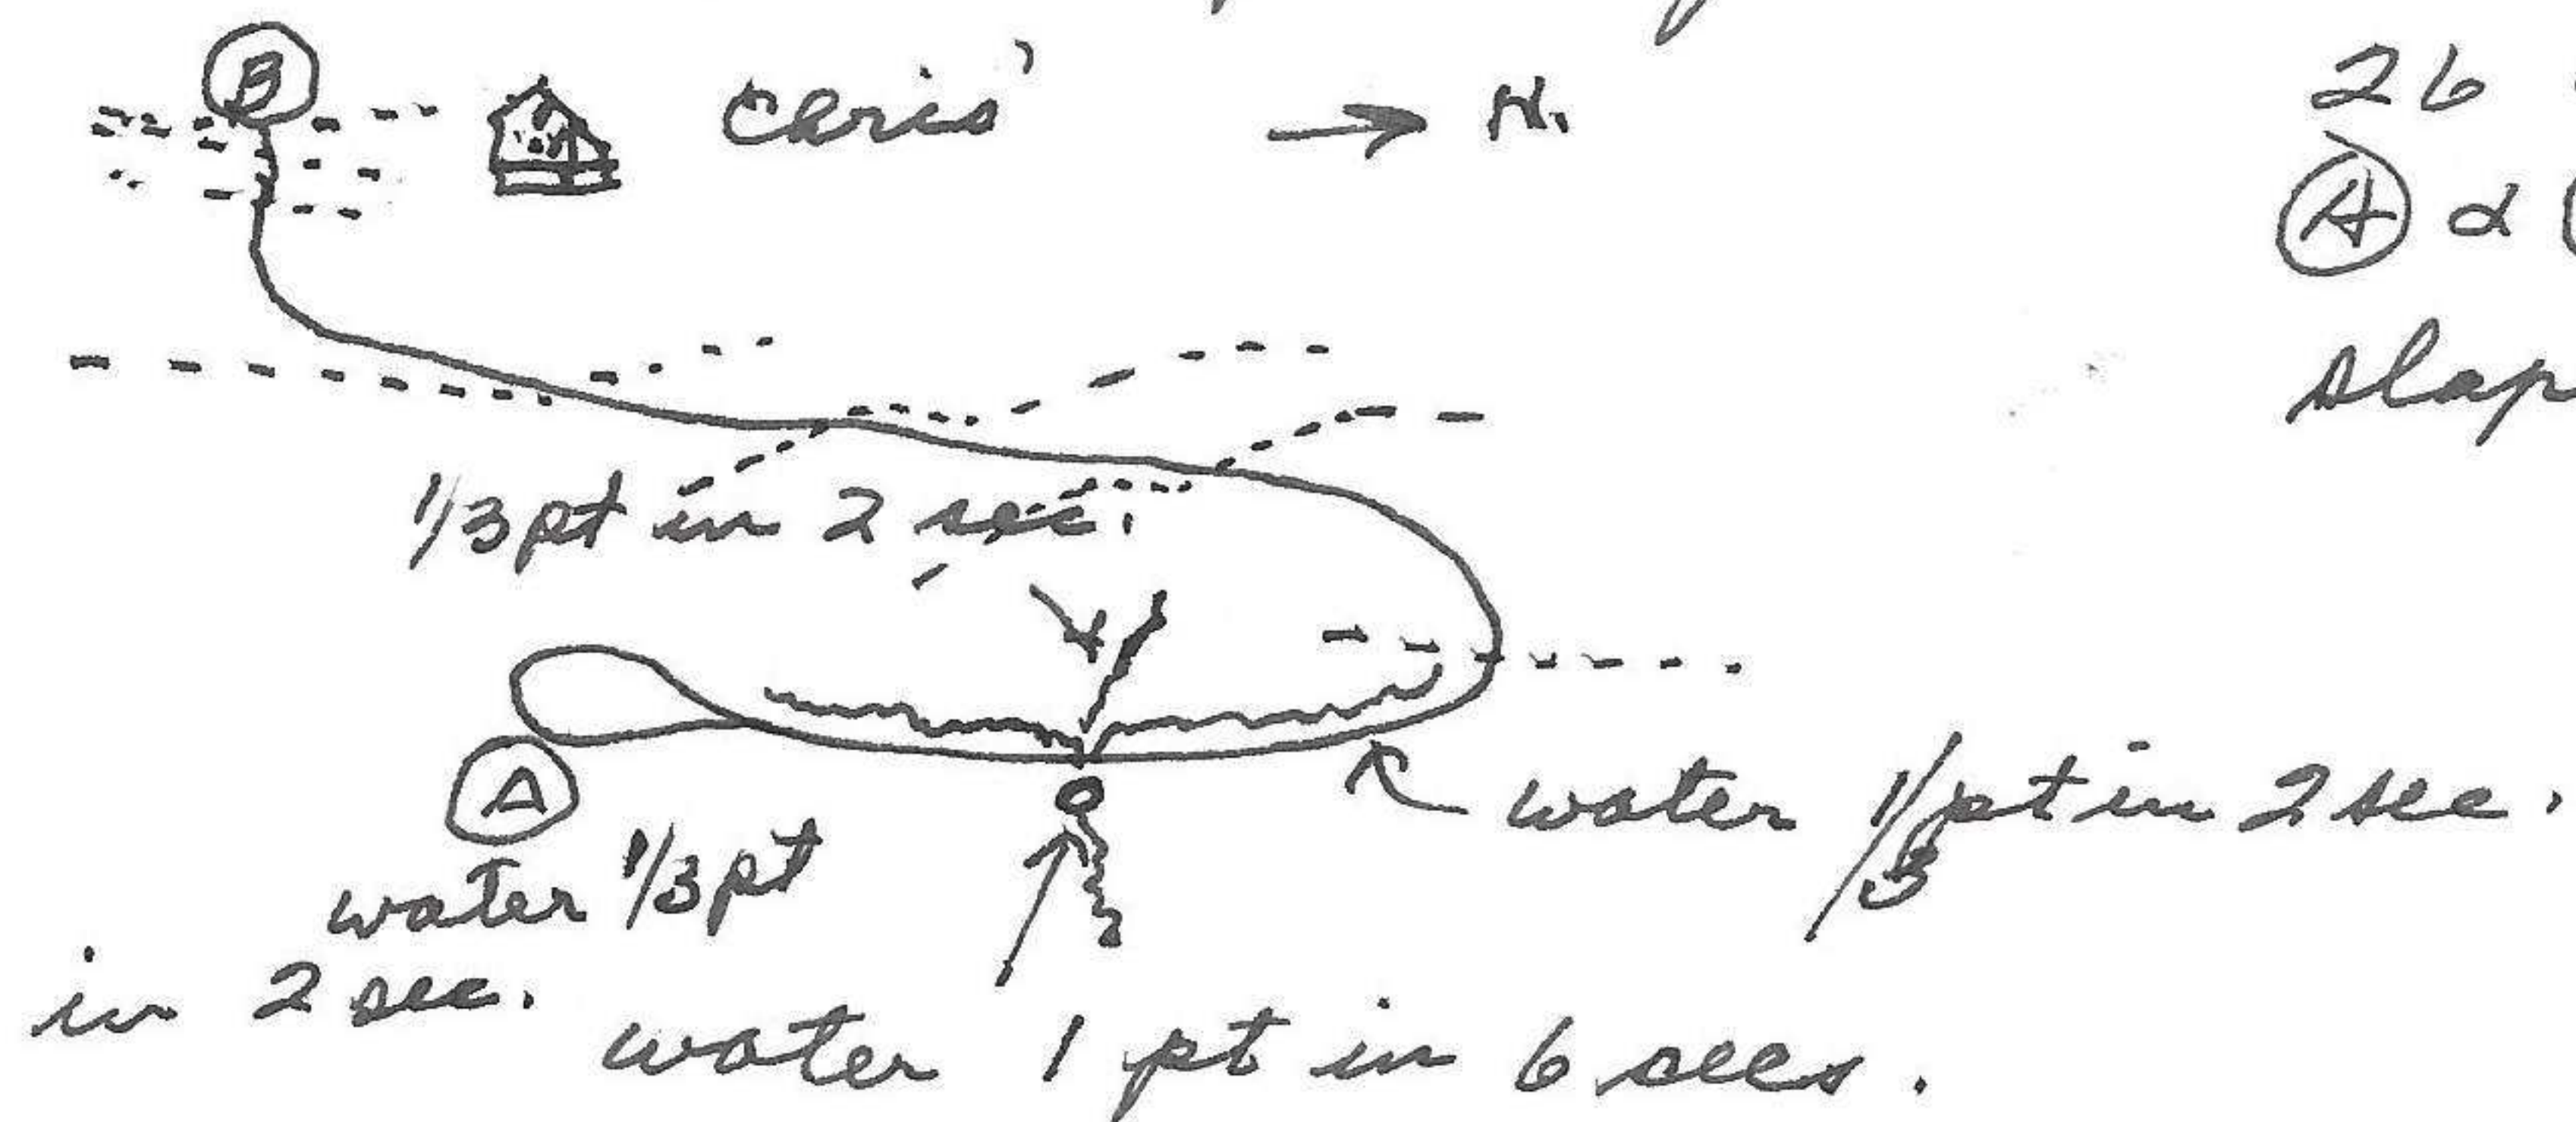 B
Chris' → N.
26
A &
slap
1/3 pt in 2 sec.
A
water 1/3 pt in 2 sec.
water 1/3 pt
in 2 sec.
water 1 pt in 6 secs.